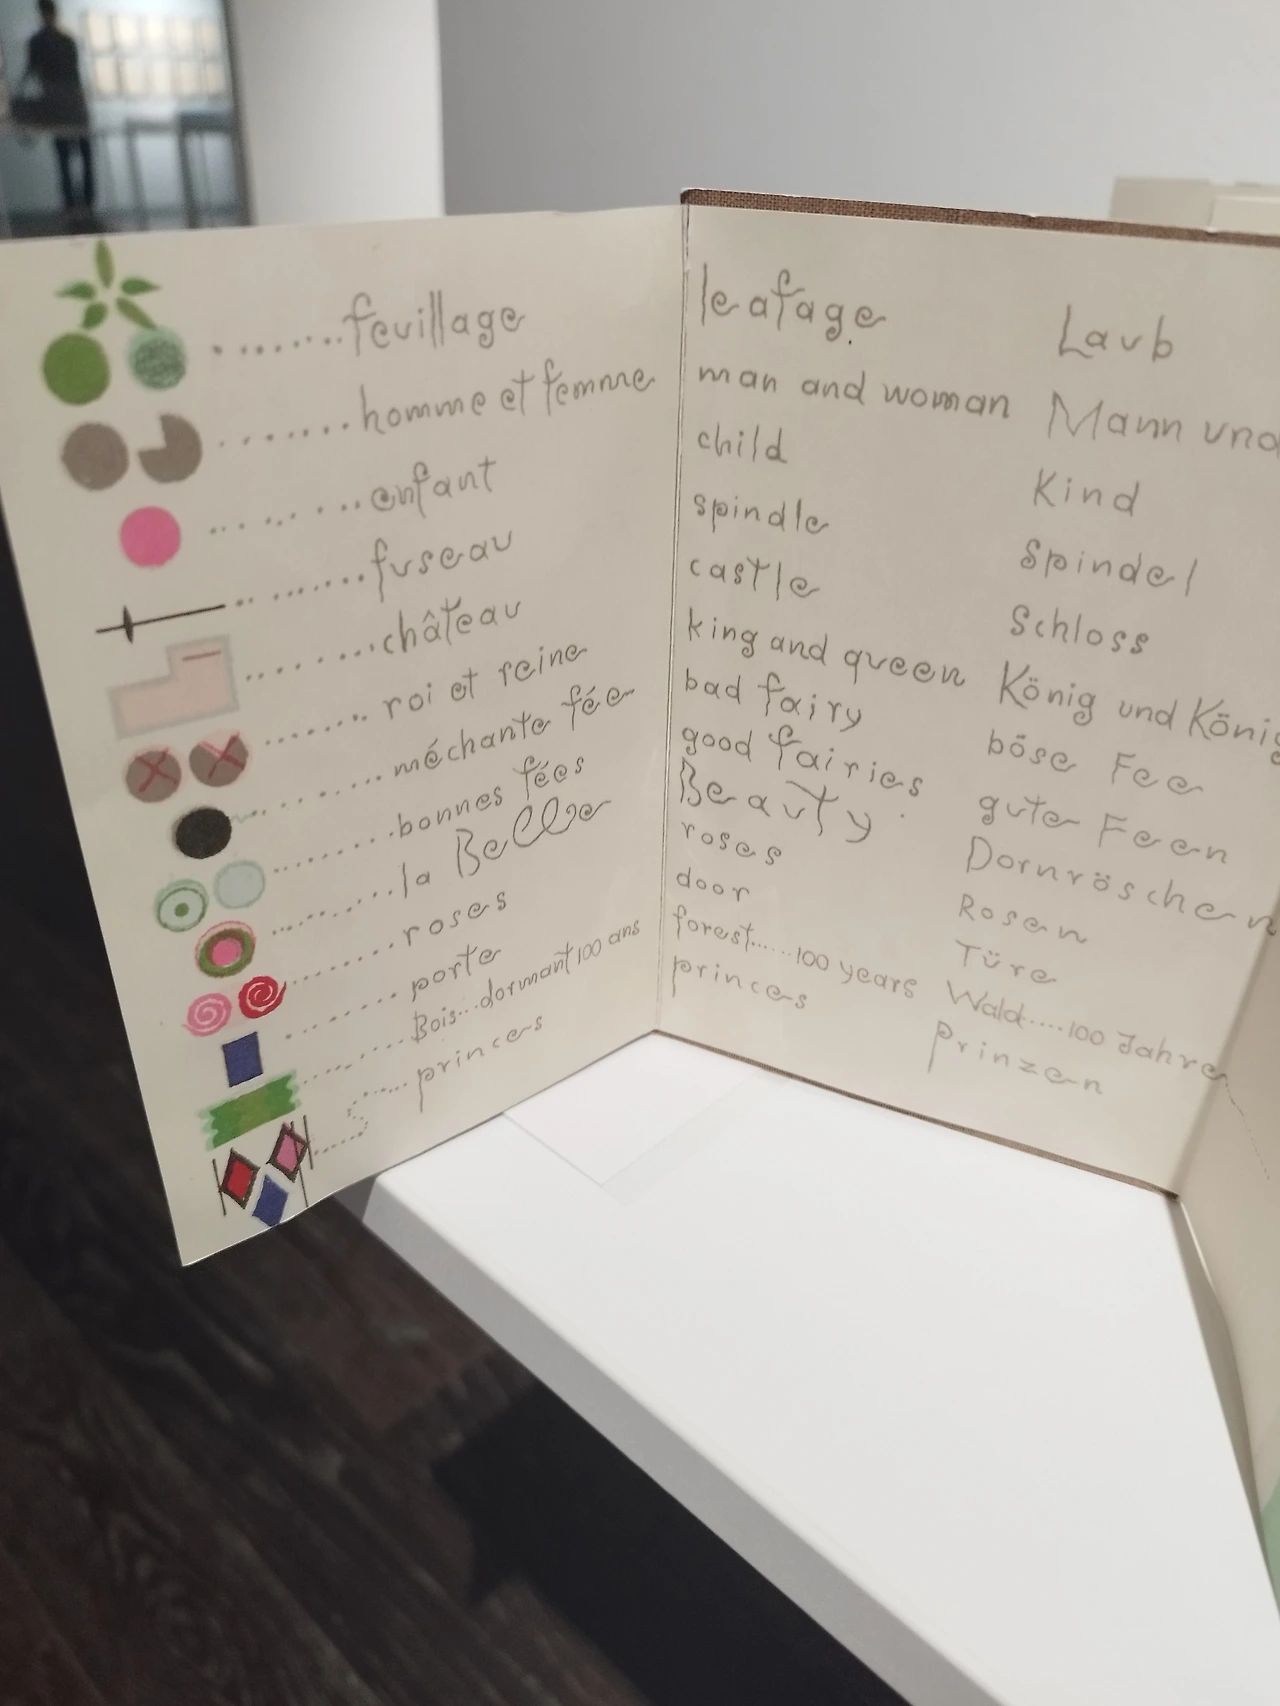 feuillage
homme et femme
enfant
fuseau
château
roi et reine
méchante fée
bonnes fées
la Belle
roses
porte
Bois...dormant 100 ans
princes
leafage
man and woman
child
spindle
castle
king and queen
bad fairy
good fairies
Beauty
roses
door
forest......100 years
princes
Laub
Mann und
Kind
Spindel
Schloss
König und König
böse Fee
gute Feen
Dornröschen
Rosen
Türe
Wald.....100 Jahre
Prinzen